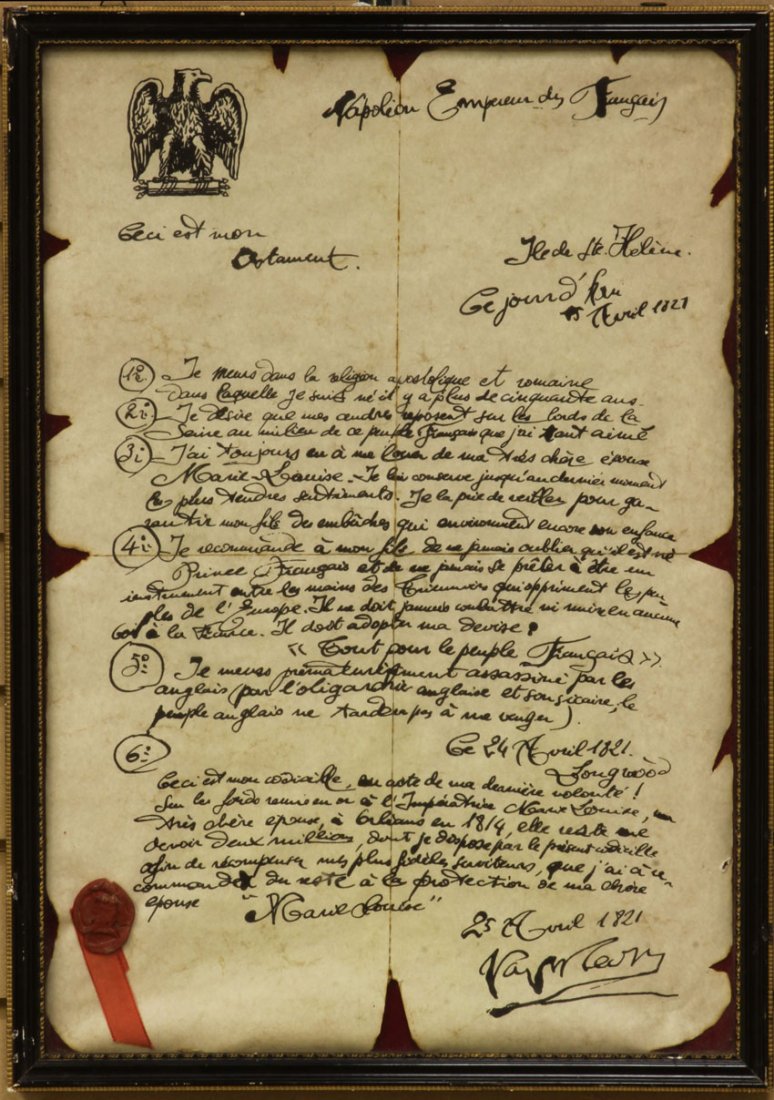 Napoléon Empereur des Français
Ceci est mon
testament.
Ile de Ste. Hélène.
Ce jourd'hui
15 Avril 1821
1º Je meurs dans la religion apostolique et romaine
dans laquelle je suis né il y a plus de cinquante ans.
2º - Je désire que mes cendres reposent sur les bords de la
Seine au milieu de ce peuple Français que j'ai tant aimé
3º - J'ai toujours eu à me louer de ma très chère épouse
Marie-Louise. - Je lui conserve jusqu'au dernier moment
les plus tendres sentiments. Je la prie de veiller pour ga-
rantir mon fils des embûches qui environnent encore son enfance
4º Je recommande à mon fils de ne jamais oublier qu'il est né
Prince Français et de ne jamais se prêter à être un
instrument entre les mains des qui oppriment les peu-
ples de l'Europe. Il ne doit jamais combattre ni nuire en aucune
à la France. Il doit adopter ma devise :
« Tout pour le peuple Français »
5º Je meurs prématurément assassiné par les
anglais par l'oligarchie anglaise et son sicaire, le
peuple anglais ne tardera pas à me venger).
Ce 24 Avril 1821.
Longwood
6º
Ceci est mon codicille, ou acte de ma dernière volonté !
Sur les fonds remis en or à l'Impératrice Marie Louise, ma
très chère epouse, à Orléans en 1814, elle reste me
devoir deux millions, dont je dispose par le présent codicille
afin de récompenser mes plus fidèles serviteurs, que j'ai à re-
commander du reste à la protection de ma chère
epouse "Marie Louise"
25 Avril 1821
Napoléon